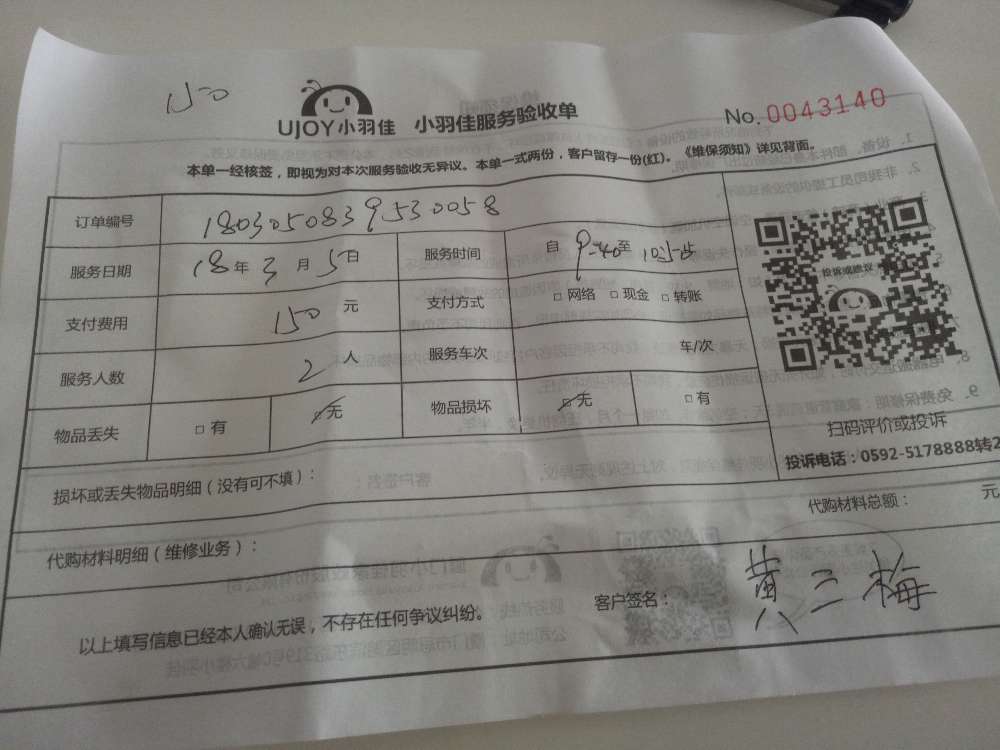 150
UJOY小羽佳 小羽佳服务验收单
No. 0043140
本单一经核签，即视为对本次服务验收无异议。本单一式两份，客户留存一份(红)。《维保须知》详见背面。
订单编号 180305083953 0058
服务日期 18年3月5日 服务时间 自9-40至
支付费用 150元 支付方式 □网络 □现金 □转账
投诉或建议
服务人数 2人 服务车次 车/次
物品丢失 □有 □无 物品损坏 □无 □有
扫码评价或投诉
投诉电话：0592-5178888转2
损坏或丢失物品明细（没有可不填）：
代购材料明细（维修业务）： 代购材料总额： 元
以上填写信息已经本人确认无误，不存在任何争议纠纷。 客户签名： 黄三梅